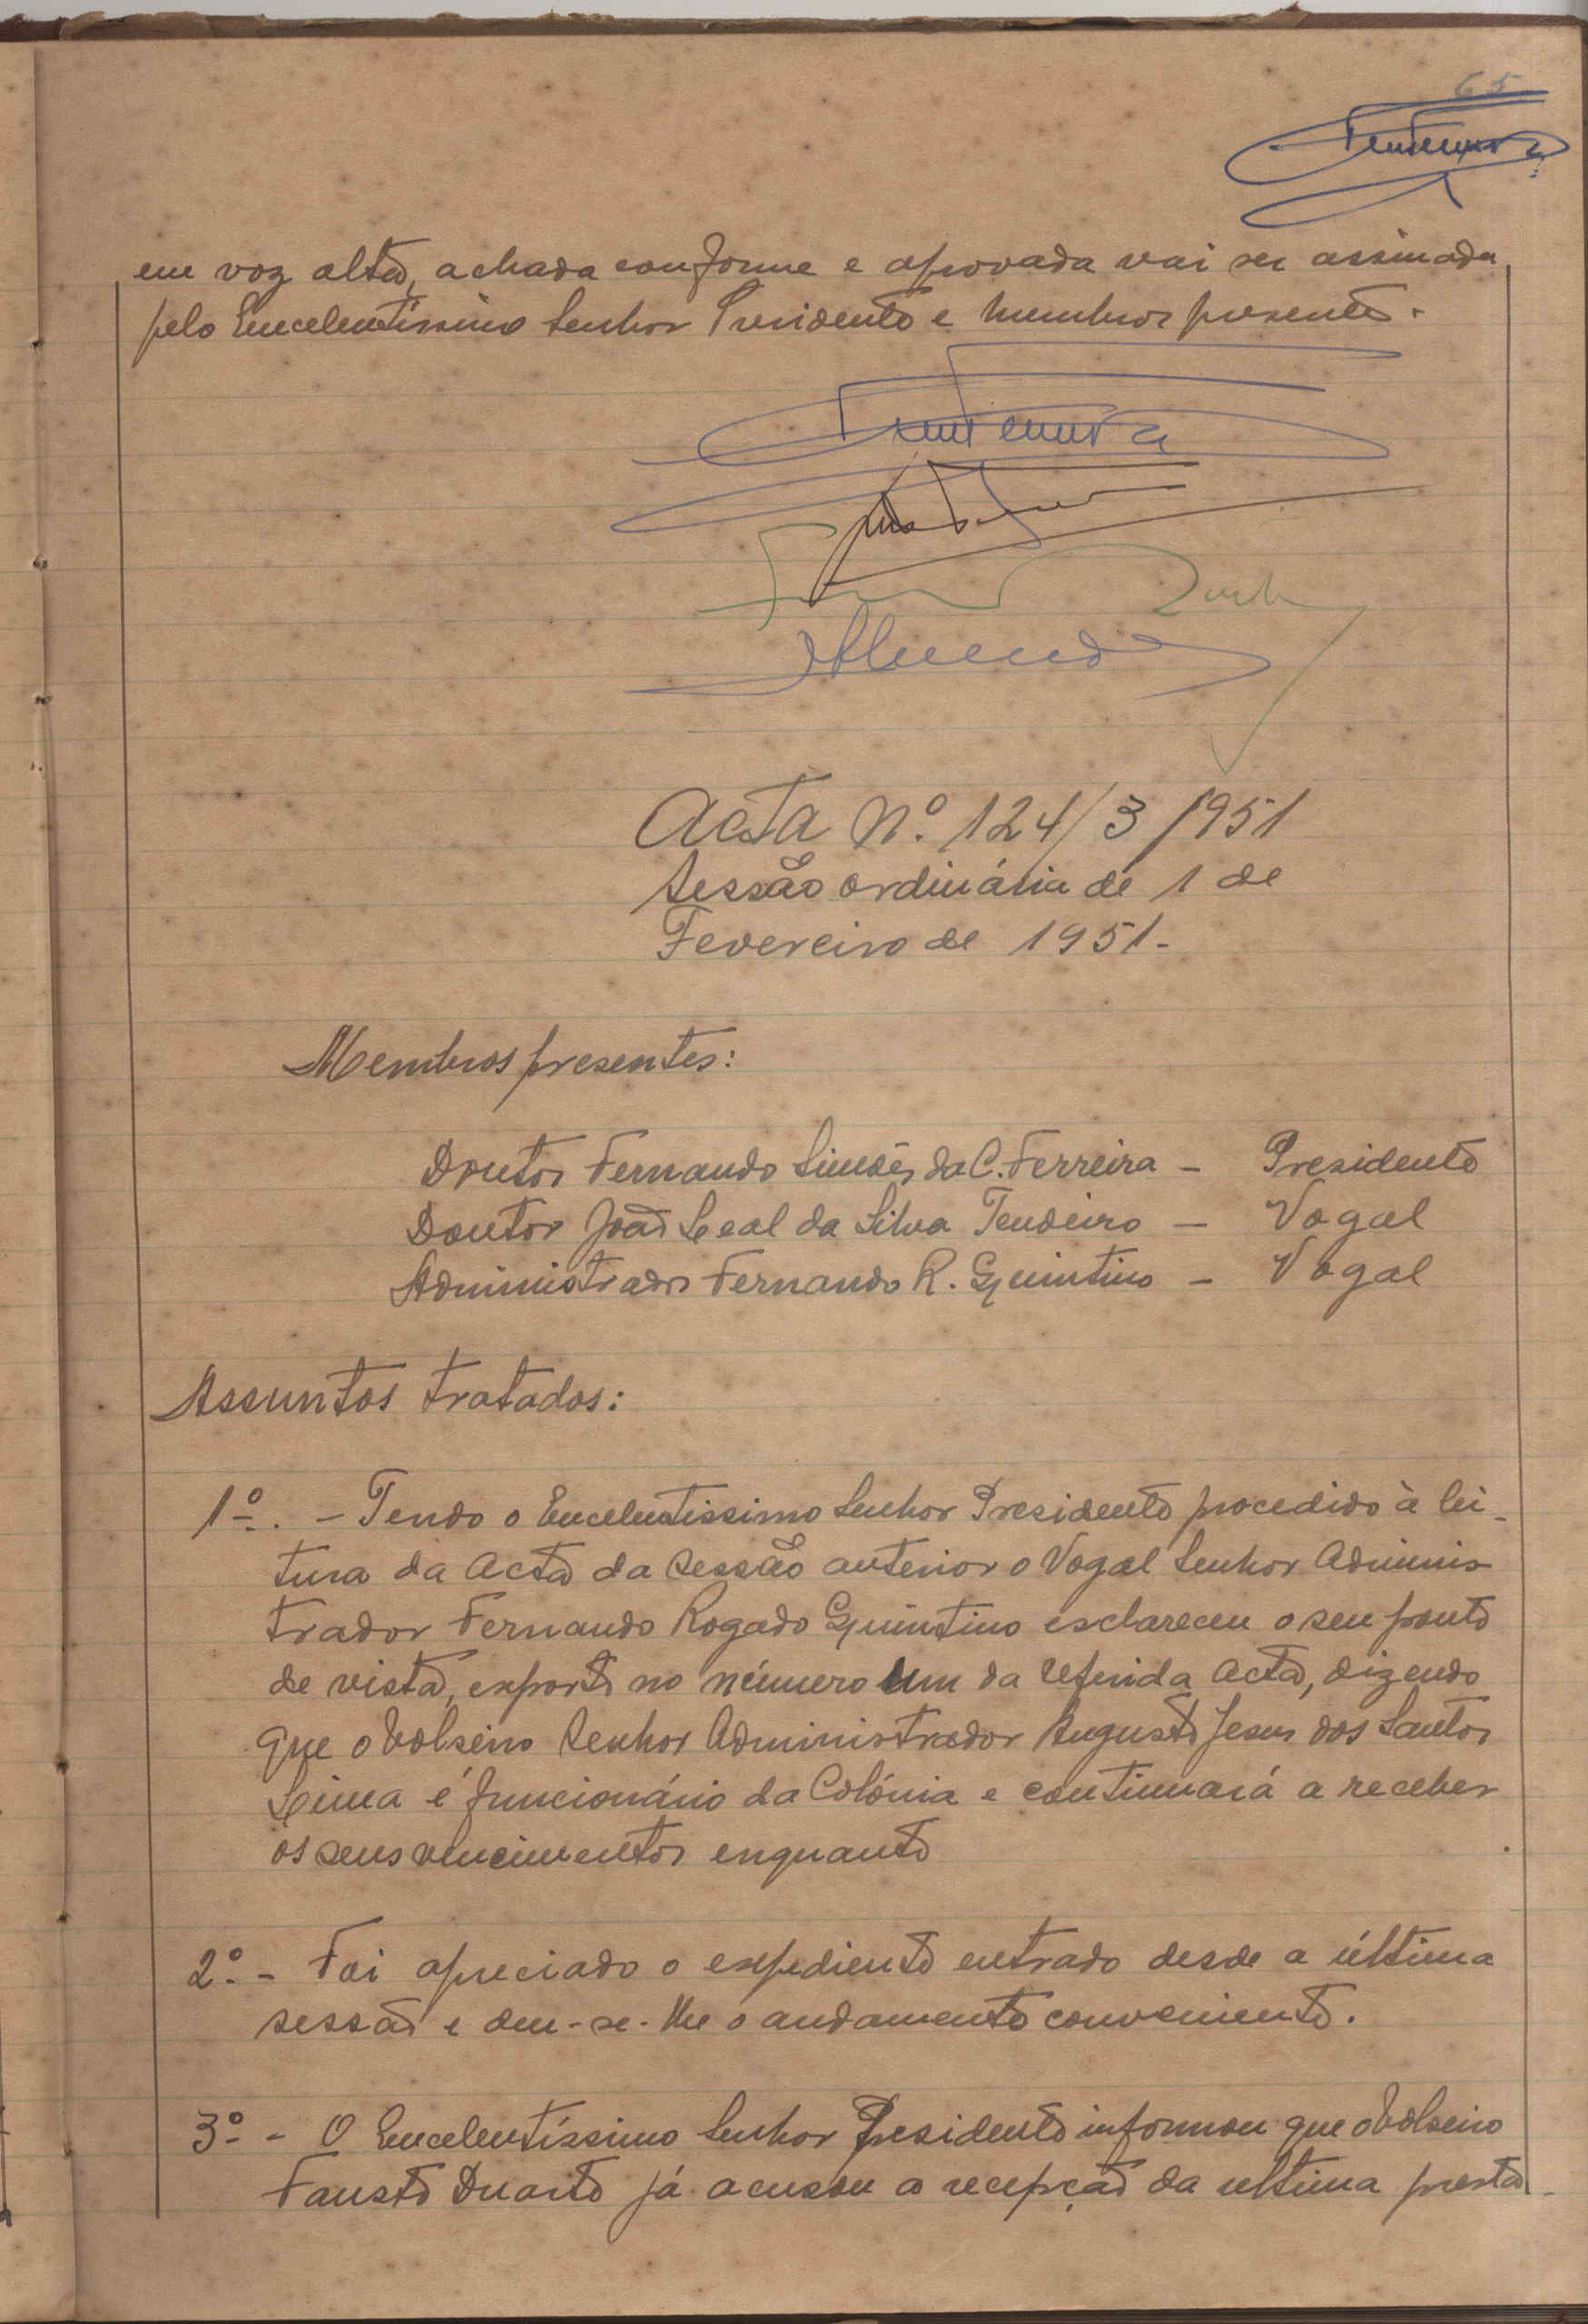 65
em voz alta, achada conforme e aprovada vai ser assinada
pelo Excelentíssimo Senhor Presidente e membros presentes.
Acta Nº. 124/3/951
Sessão ordinária de 1 de
Fevereiro de 1951-
Membros presentes:
Doutor Fernando Simões da C. Ferreira - Presidente
Doutor João Leal da Silva Tendeiro - Vogal
Administrador Fernando R. Quintino - Vogal
Assuntos tratados:
1º. - Tendo o Excelentissimo Senhor Presidente procedido à lei-
tura da Acta da Sessão anterior o Vogal Senhor Adminis
trador Fernando Rogado Quintino esclareceu o seu ponto
de vista, exposto no número um da referida Acta, dizendo
que o bolseiro Senhor Administrador Augusto Jesus dos Santos
Lima é funcionário da Colónia e continuará a receber
os seus vencimentos enquanto
2º. - Foi apreciado o expediente entrado desde a última
sessão e deu-se-lhe o andamento conveniente.
3º - O Excelentíssimo Senhor Presidente informou que o bolseiro
Fausto Duarte já acusou a recepção da ultima presta-